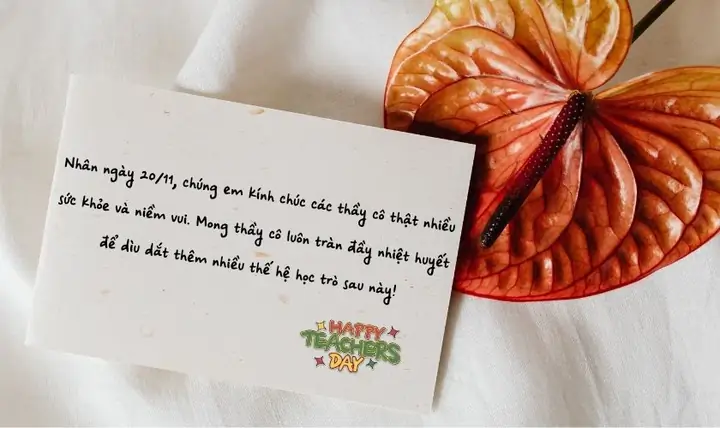 Nhân ngày 20/11, chúng em kính chúc các thầy cô thật nhiều
sức khỏe và niềm vui. Mong thầy cô luôn tràn đầy nhiệt huyết
để dìu dắt thêm nhiều thế hệ học trò sau này!
HAPPY
TEACHERS
DAY